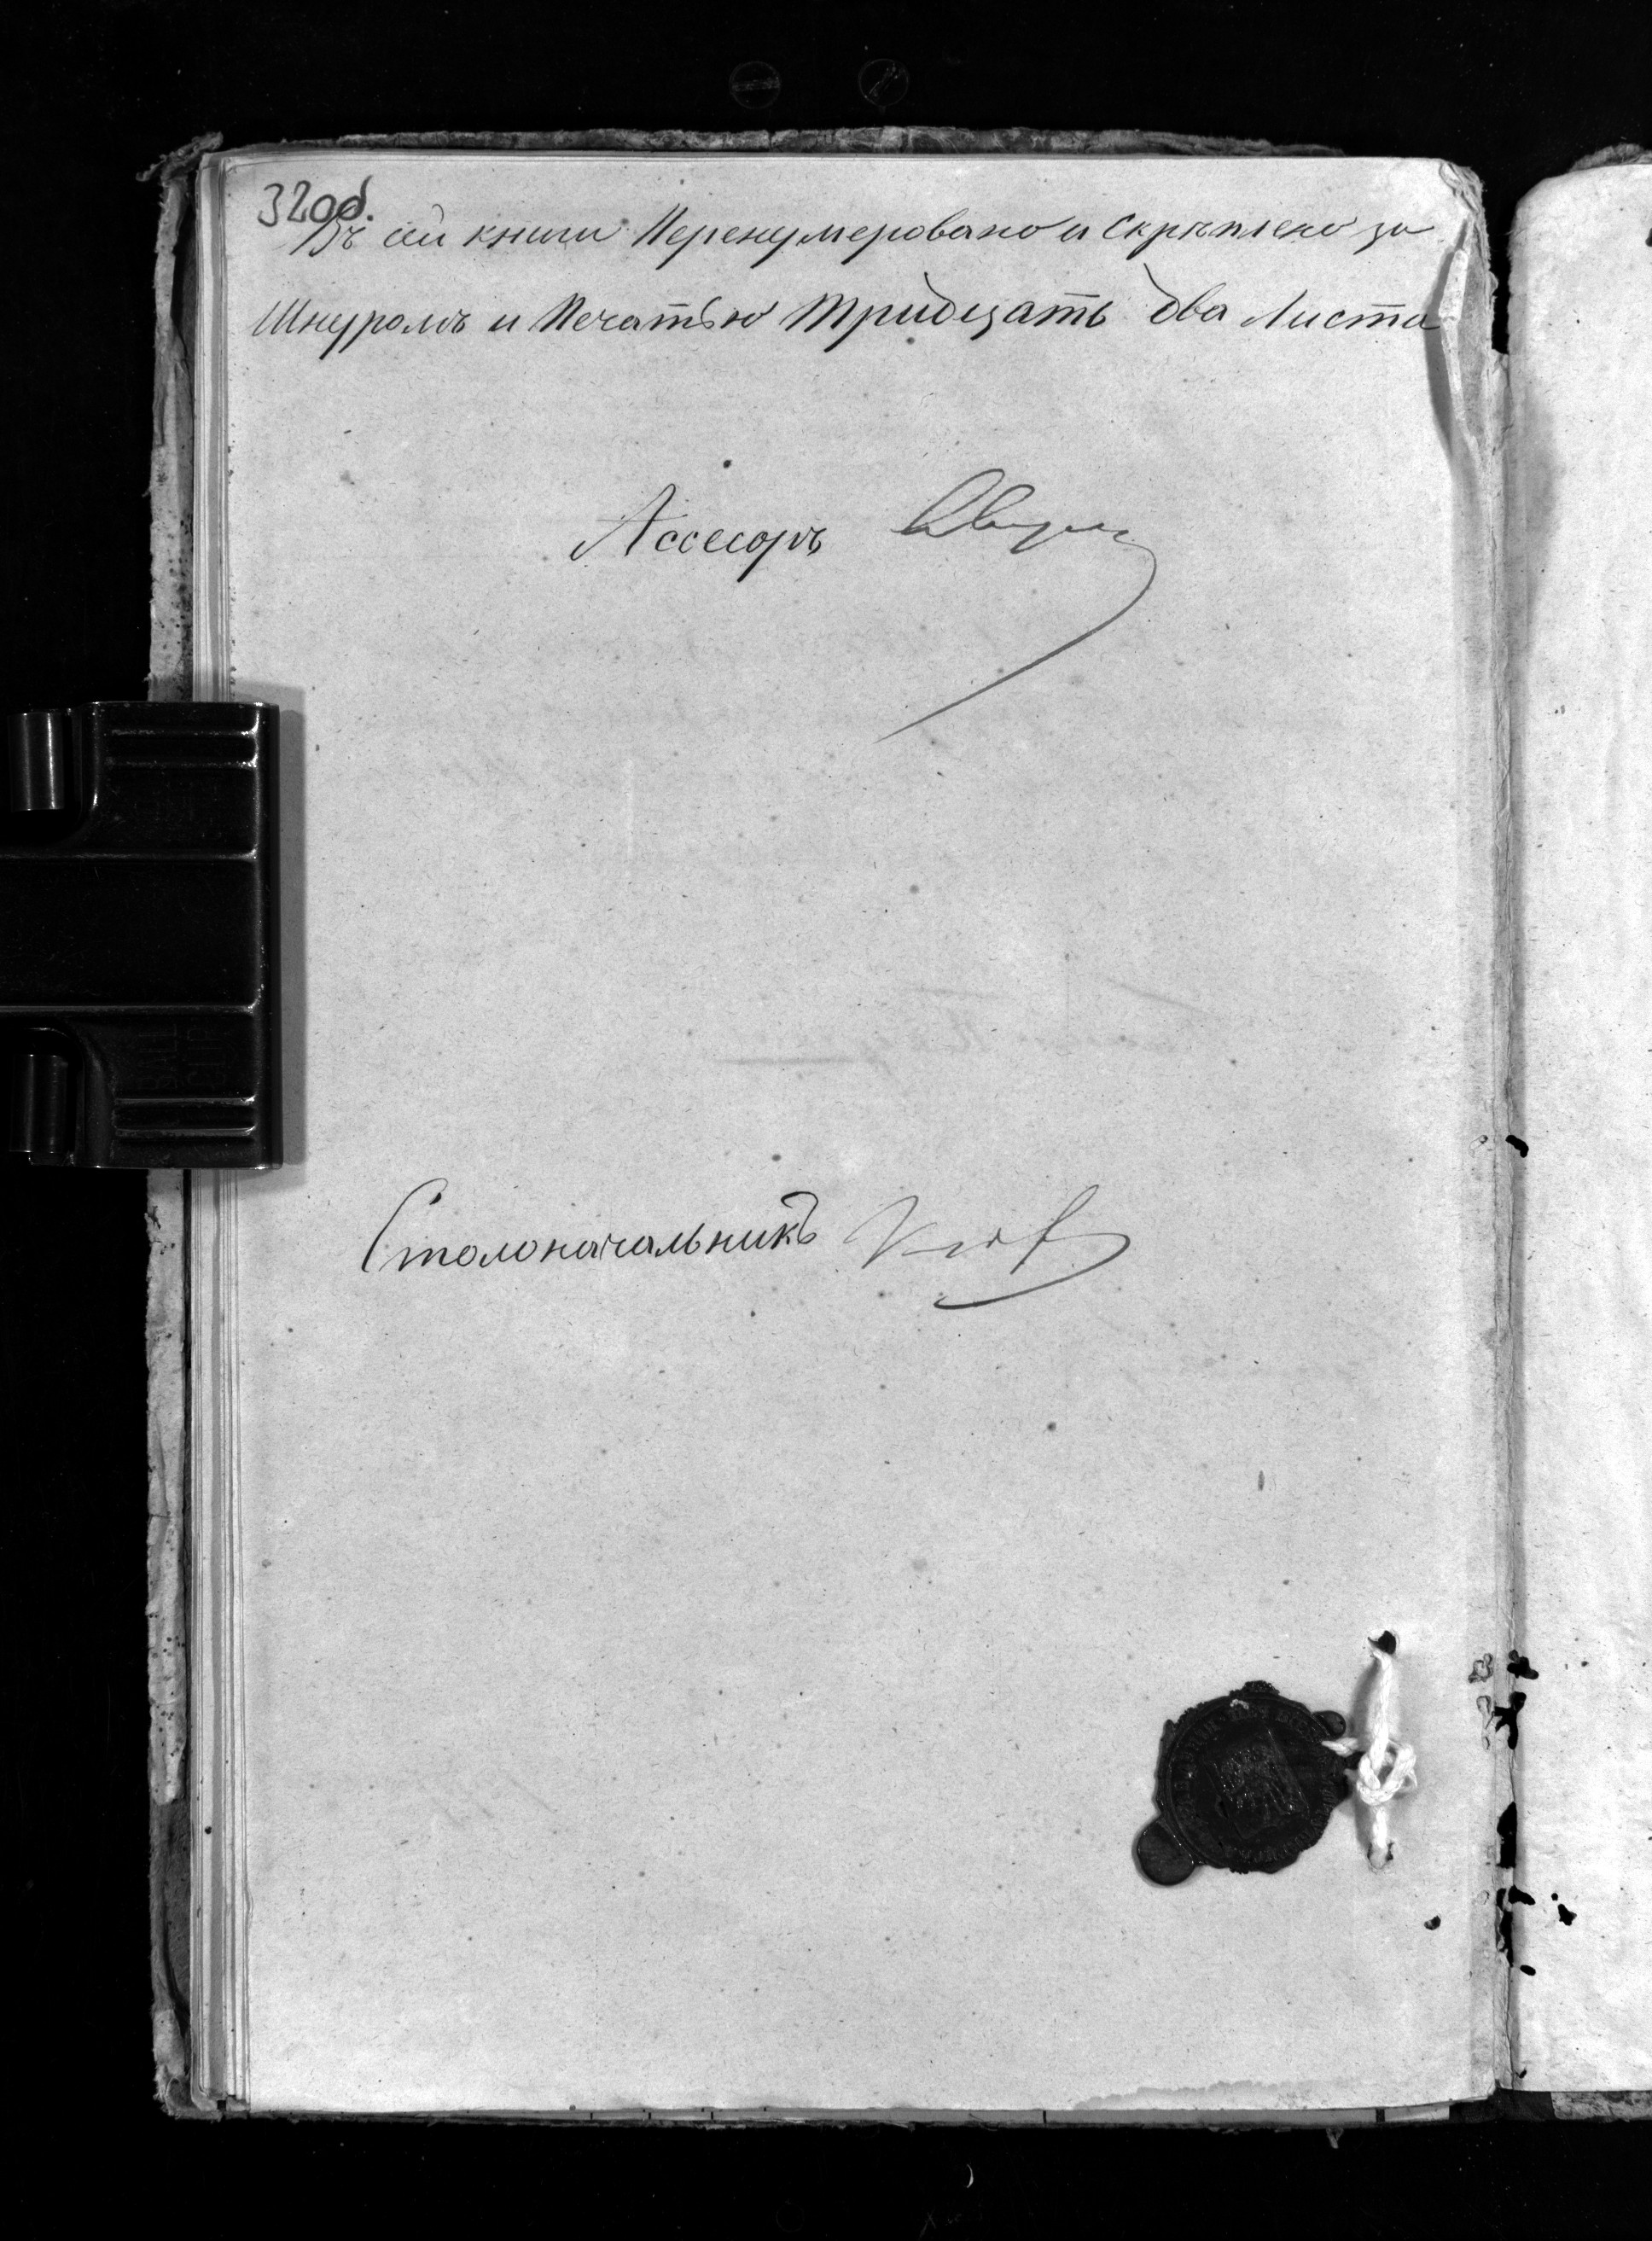 32об.
Въ сей книги Перенумеровано и Скрѣплено за
Шнуромъ и Печатью Тридцать два Листа
Ассесоръ
Столоначальникъ